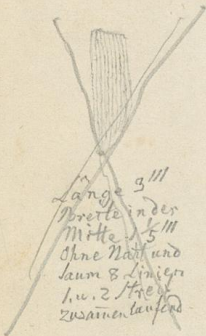 Länge 3'''
Breite in der
Mitte 1,5'''
Ohne Naht und
Saum 8 Linien
1. u. 2 Streif
zusam̅enlaufend